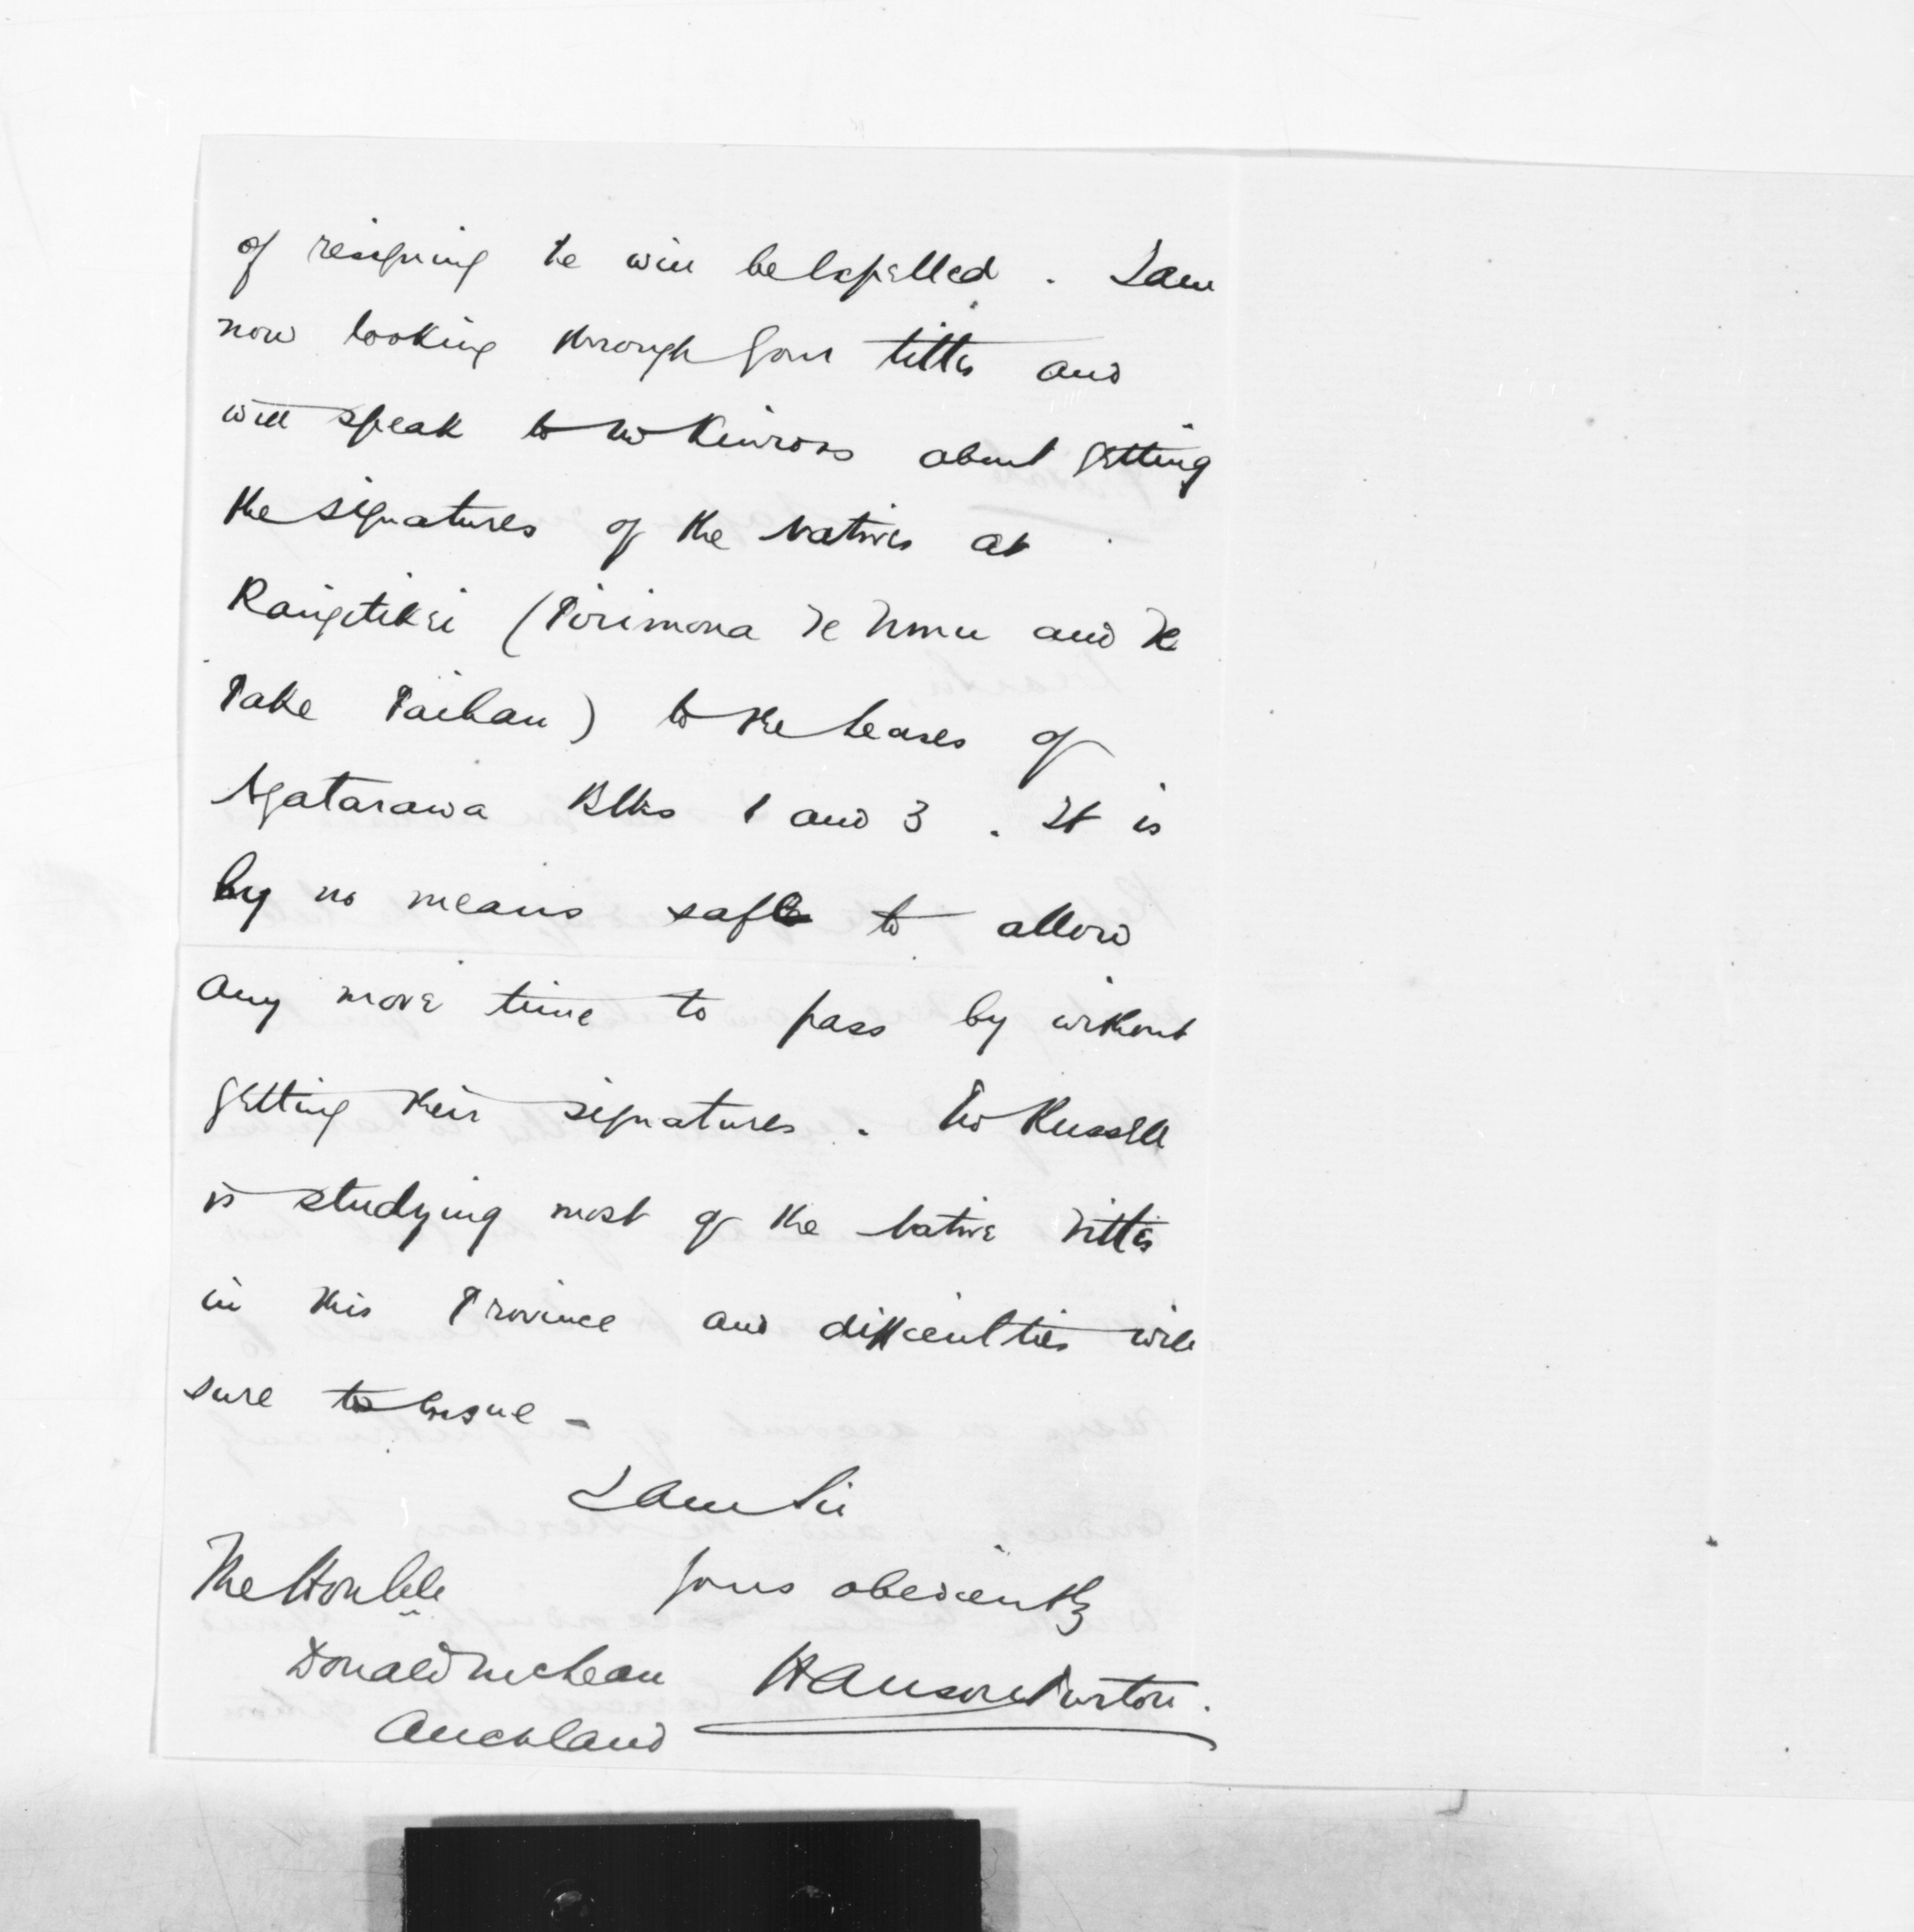 of resigning he will be expelled. I am
now looking through your titles and
will speak to Mr Kinross about getting
the signatures of the Natives at
Rangitikei (Pirimona Te Urnu and Te
Take Paihau) to the leases of
Ngatarawa Blks 1 and 3. It is
by no means safe to allow
any more time to pass by without
getting their signatures. Mr Russell
is studying most of the Native Titles
in this Province and difficulties will
sure to ensue -
I am Sir
The Honble yours obediently
Donald McLean Hanson Turton.
Auckland